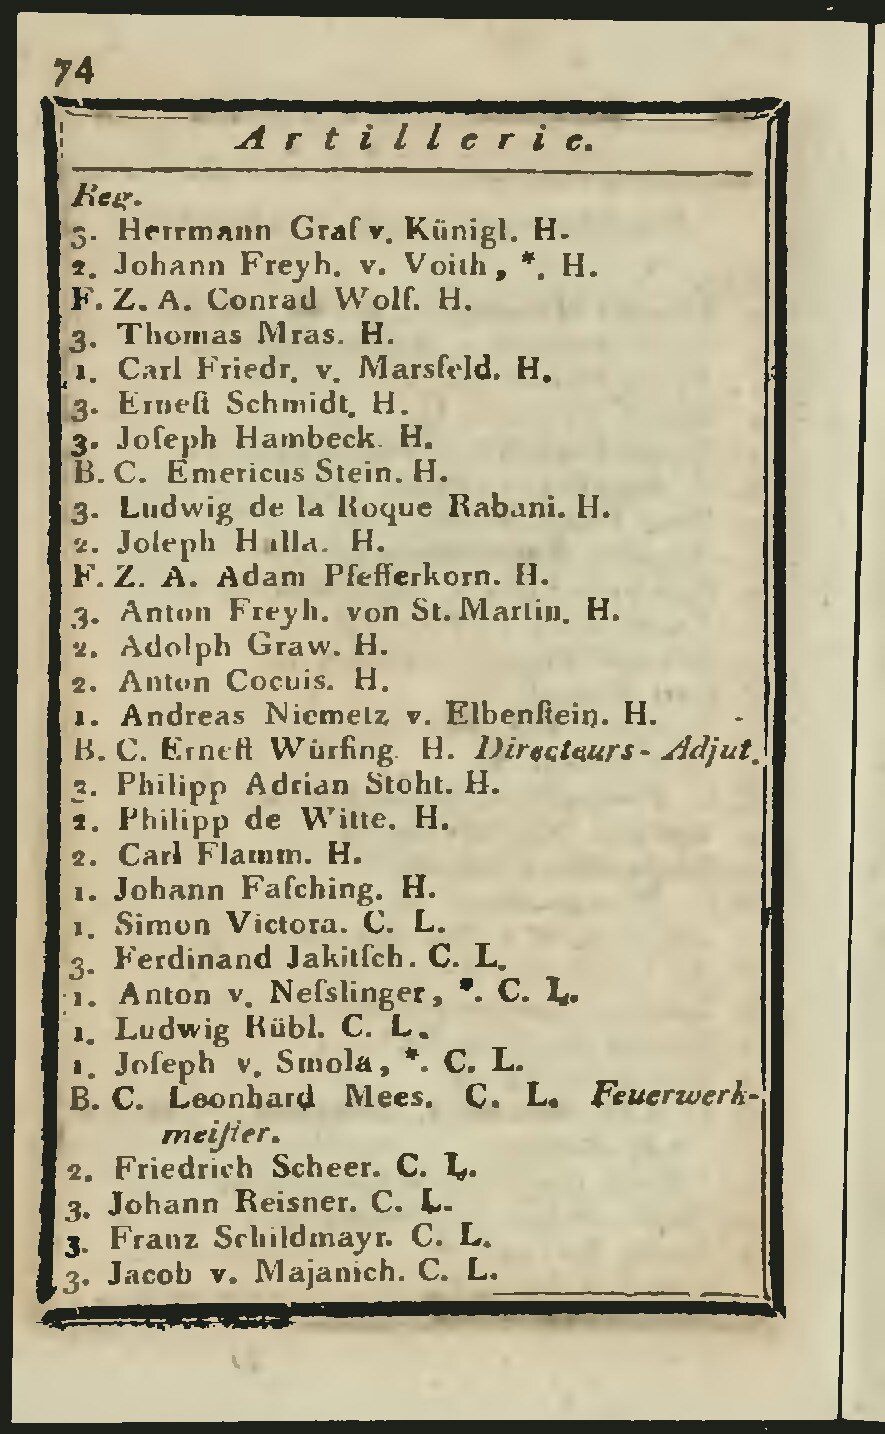 74
Artillerie.
Reg.
3. Herrmann Graf v. Künigl. H.
2. Johann Freyh. v. Voith, *. H.
F. Z. A. Conrad Wolf. H.
3. Thomas Mras. H.
1. Carl Friedr. v. Marsfeld. H.
3. Erneſt Schmidt. H.
3. Joſeph Hambeck. H.
B. C. Emericus Stein. H.
3. Ludwig de la Roque Rabani. H.
2. Joſeph Halla. H.
F. Z. A. Adam Pfefferkorn. H.
3. Anton Freyh. von St. Martin. H.
2. Adolph Graw. H.
2. Anton Cocuis. H.
1. Andreas Niemetz v. Elbenſtein. H.
B. C. Erneſt Würfing. H. Directeurs-Adjut.
2. Philipp Adrian Stoht. H.
2. Philipp de Witte. H.
2. Carl Flamm. H.
1. Johann Faſching. H.
1. Simon Victora. C. L.
3. Ferdinand Jakitſch. C. L.
1. Anton v. Neſslinger, *. C. L.
1. Ludwig Rübl. C. L.
1. Joſeph v. Smola, *. C. L.
B. C. Leonhard Mees. C. L. Feuerwerk-
meiſter.
2. Friedrich Scheer. C. L.
3. Johann Reisner. C. L.
3. Franz Schildmayr. C. L.
3. Jacob v. Majanich. C. L.